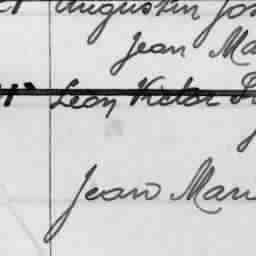 Augustin Jos
Jean Ma
Léon Victor
Jean Mari